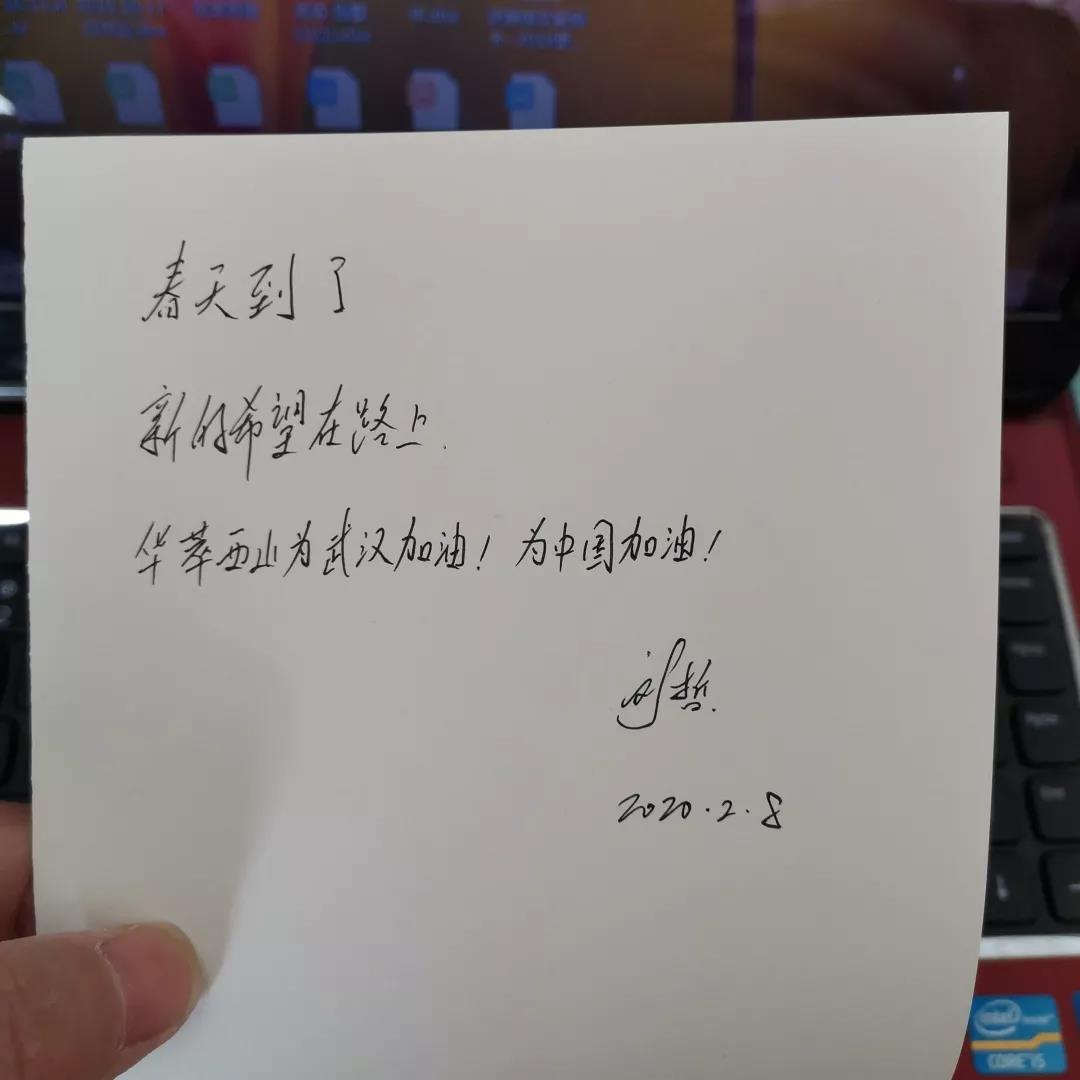 春天到了
新的希望在路上.
华萃西山为武汉加油！为中国加油！
刘哲.
2020.2.8
intel
CORE i5